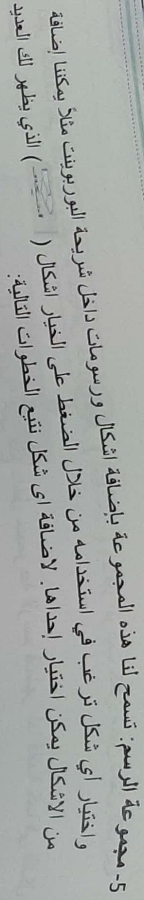 5- مجموعة الرسم: تسمح لنا هذه المجموعة بإضافة اشكال ورسومات داخل شريحة البوربوينت مثلاً يمكننا إضافة
واختيار أي شكل ترغب في استخدامه من خلال الضغط على الخيار اشكال ( ) الذي يظهر لك العديد
من الاشكال يمكن اختيار إحداها. لاضافة اى شكل نتبع الخطوات التالية: